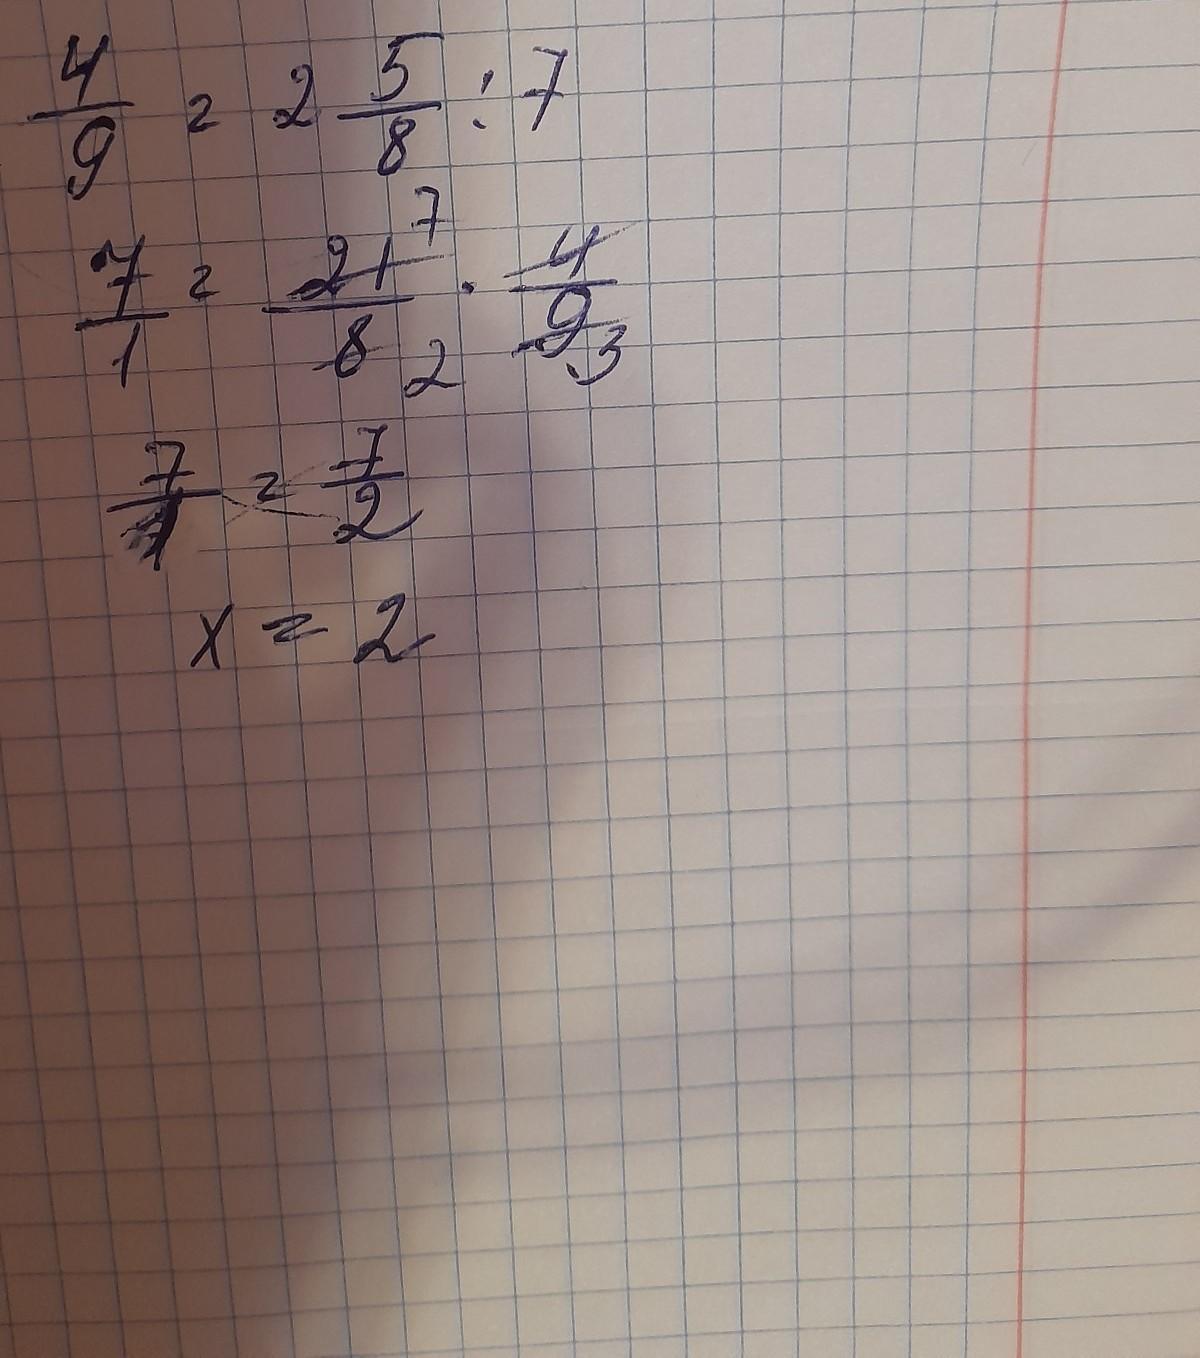 4/9 = 2 5/8 : 7
7/1 = 21/8 7 2 · 4/9 3
7/1 = 7/2
x = 2